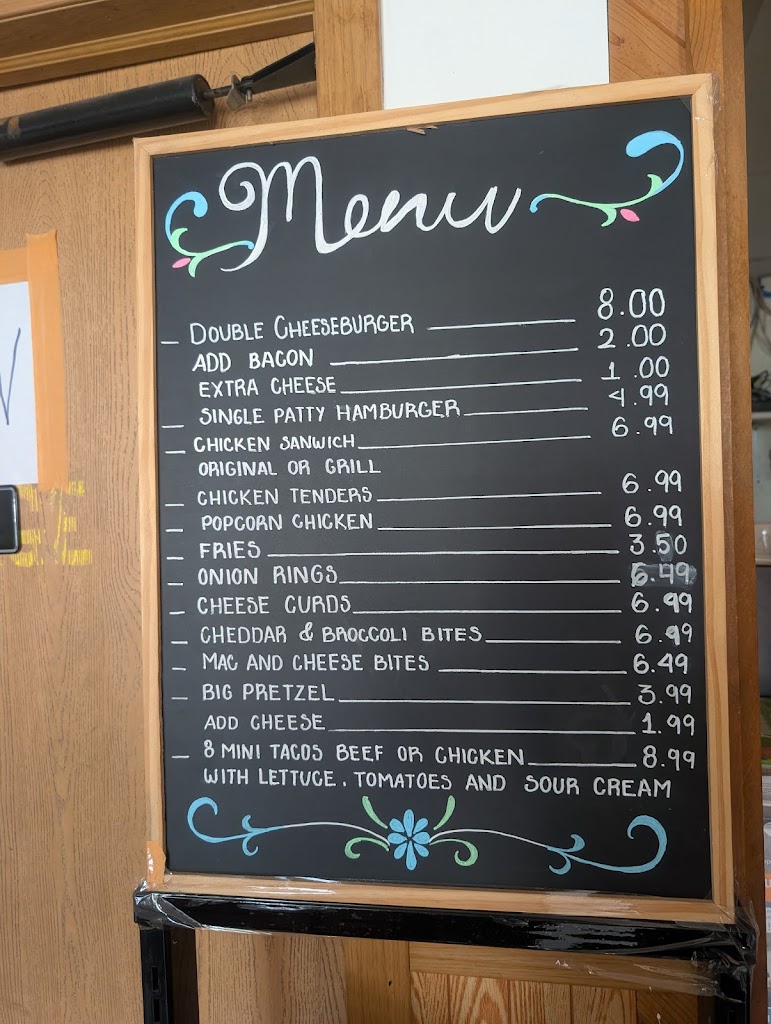 Menu
DOUBLE CHEESEBURGER 8.00
ADD BACON 2.00
EXTRA CHEESE 1.00
SINGLE PATTY HAMBURGER 4.99
CHICKEN SANWICH 6.99
ORIGINAL OR GRILL
CHICKEN TENDERS 6.99
POPCORN CHICKEN 6.99
FRIES 3.50
ONION RINGS 6.49
CHEESE CURDS 6.99
CHEDDAR & BROCCOLI BITES 6.99
MAC AND CHEESE BITES 6.49
BIG PRETZEL 3.99
ADD CHEESE 1.99
8 MINI TACOS BEEF OR CHICKEN 8.99
WITH LETTUCE, TOMATOES AND SOUR CREAM